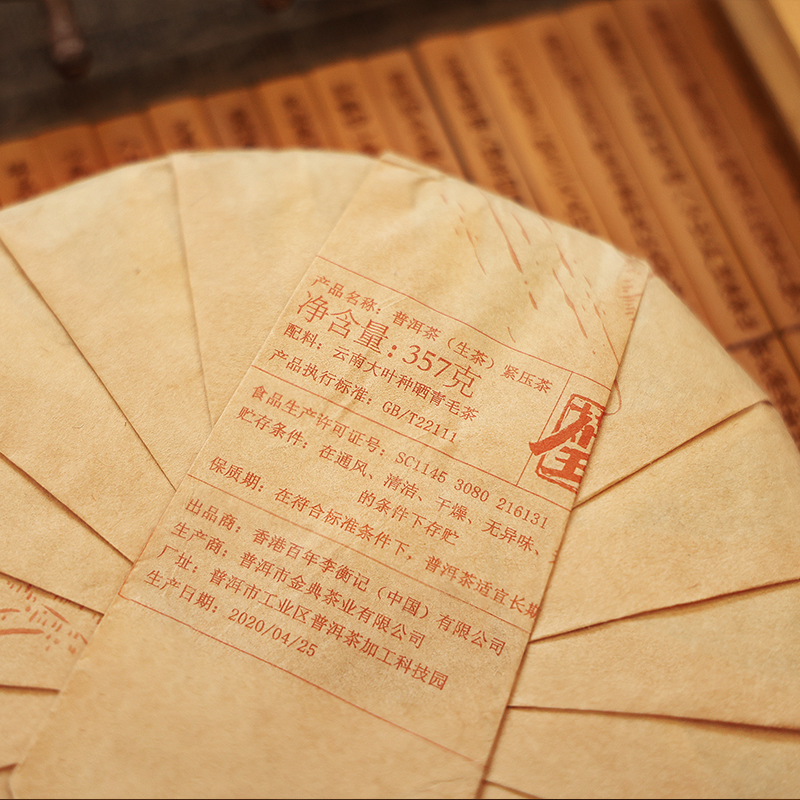 产品名称：普洱茶（生茶）紧压茶
净含量：357克
配料：云南大叶种晒青毛茶
产品执行标准：GB/T22111
食品生产许可证号：SC1145 3080 216131
贮存条件：在通风、清洁、干燥、无异味、
的条件下存贮
保质期：在符合标准条件下，普洱茶适宜长期
出品商：香港百年李衡记（中国）有限公司
生产商：普洱市金典茶业有限公司
厂址：普洱市工业区普洱茶加工科技园
生产日期：2020/04/25